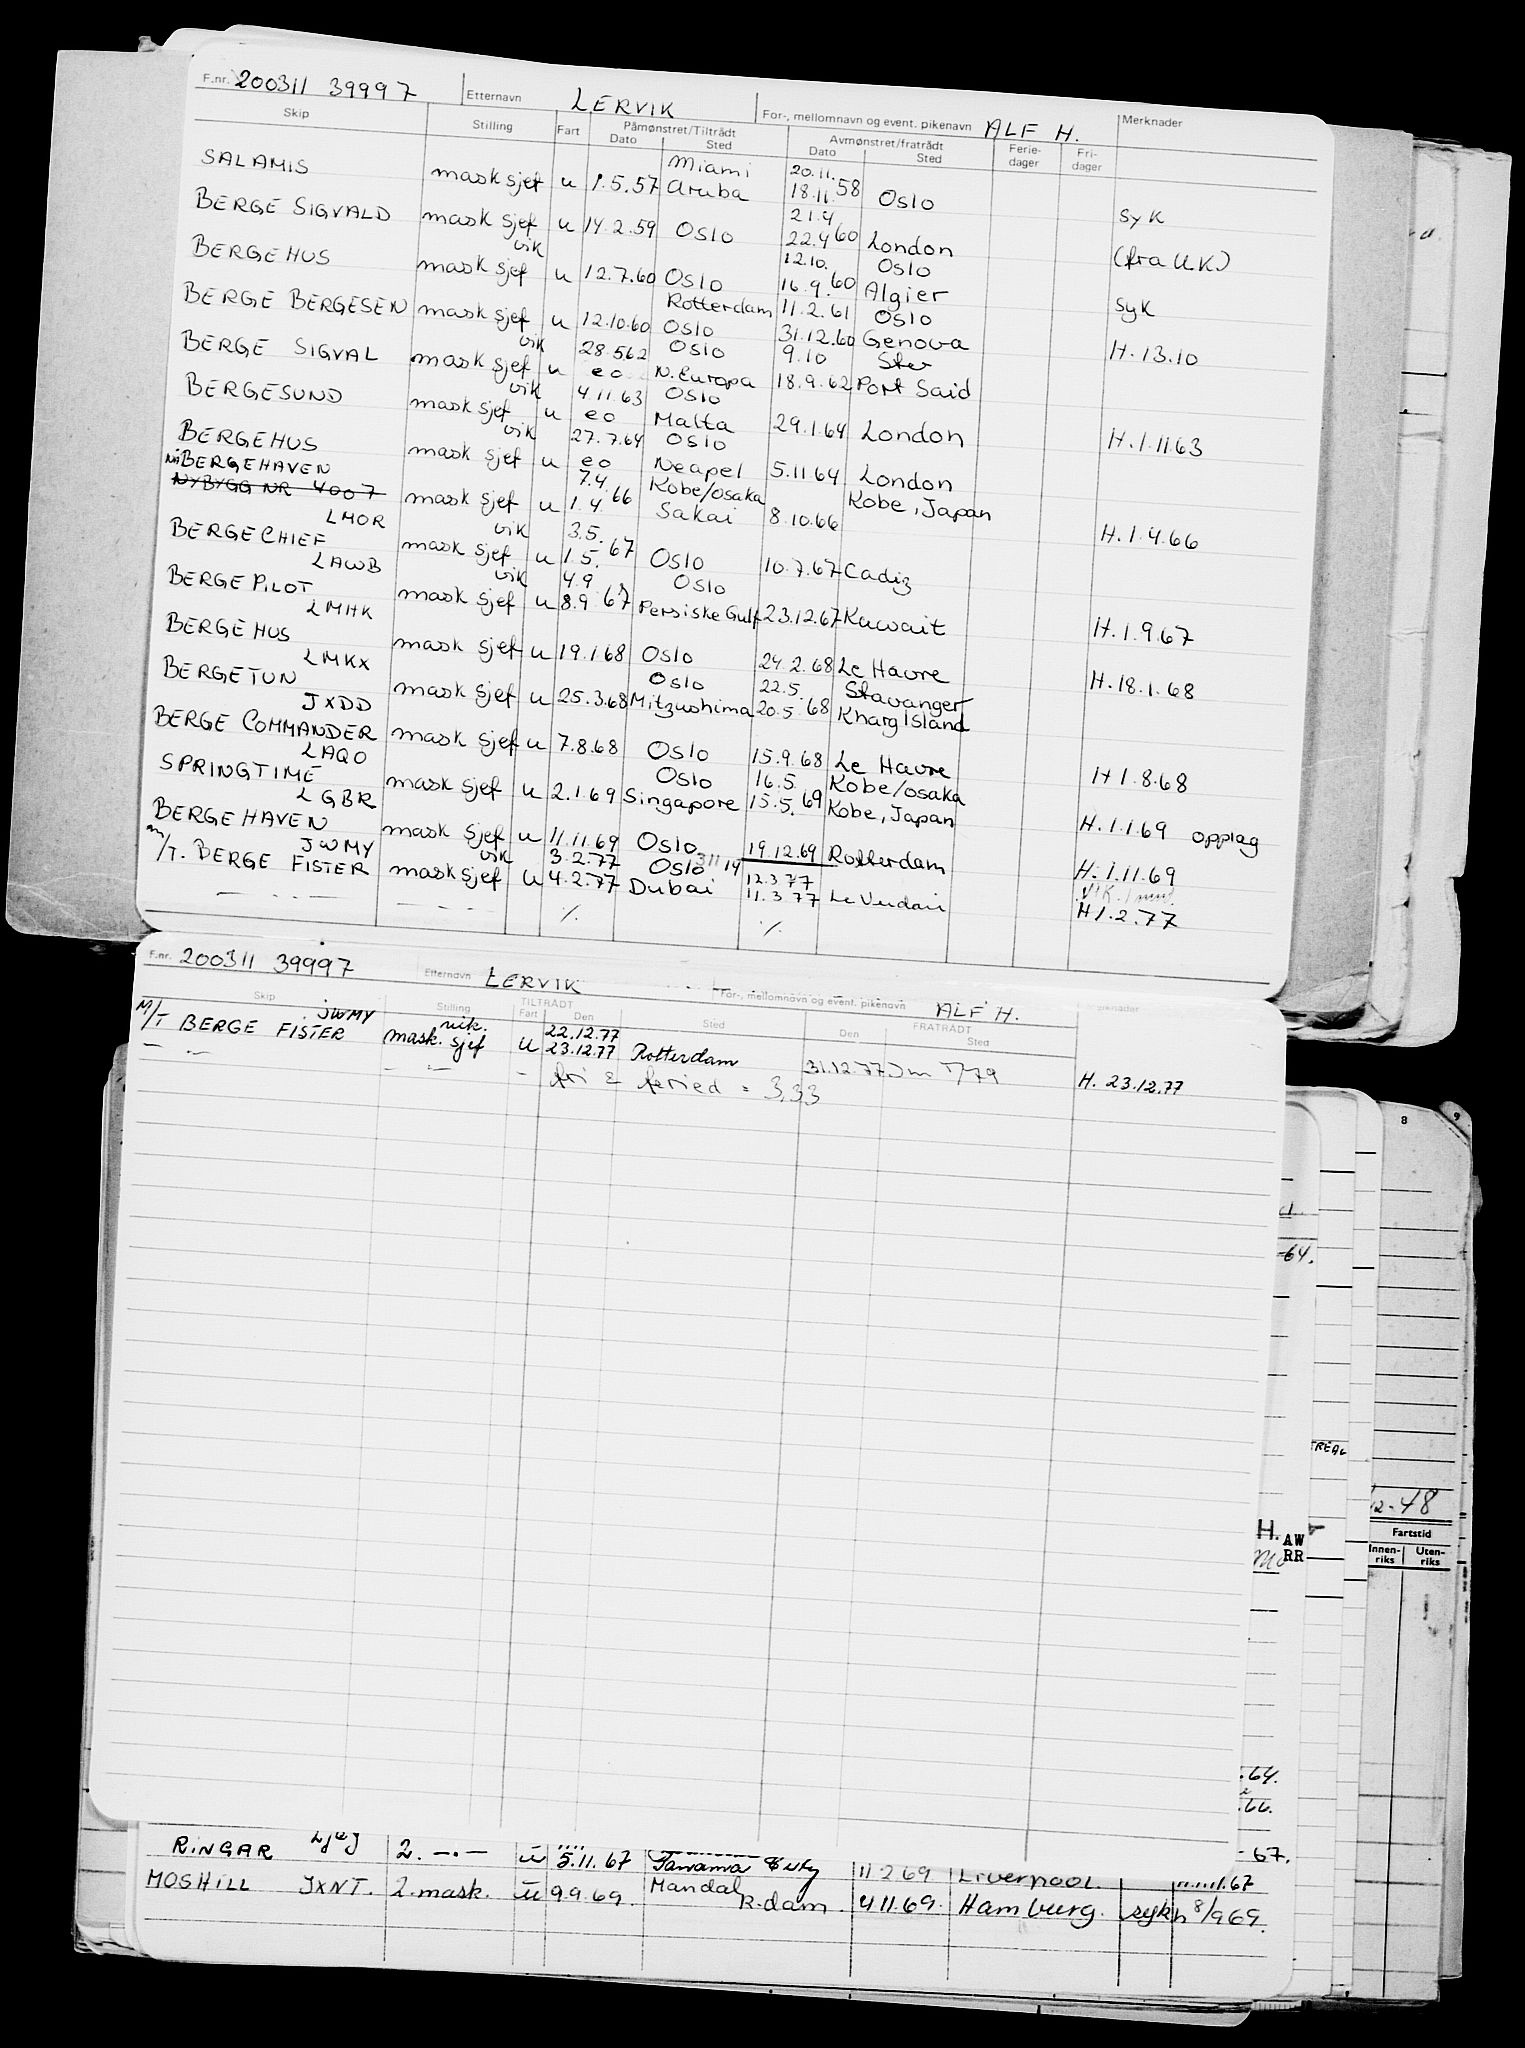 F.nr. 200311 39997 Etternavn LERVIK For-, mellomnavn og event. pikenavn ALF H. Merknader
Skip Stilling Fart Påmønstret/Tiltrådt Dato Sted Avmønstret/fratrådt Dato Sted Ferie-dager Fri-dager
Miami 20.11.
SALAMIS mask sjef u 1.5.57 Aruba 18.11.58 Oslo syk
21.4
BERGE SIGVALD mask sjef u 14.2.59 Oslo 22.4 60 London (fra U.K.)
vik 12.10. Oslo
BERGEHUS mask sjef u 12.7.60 Oslo 16.9.60 Algier syk
Rotterdam 11.2.61 Oslo
BERGE BERGESEN mask sjef u 12.10.60 Oslo 31.12.60 Genova H. 13.10
vik 28.5.62 Oslo 9.10
BERGE SIGVAL mask sjef u eo N. Europa 18.9.62 Port Said
vik 4.11.63 Oslo
BERGESUND mask sjef u eo Malta 29.1.64 London H. 1.11.63
vik 27.7.64 Oslo
BERGEHUS mask sjef u eo Neapel 5.11.64 London
nå BERGEHAVEN 7.4 Kobe/Osaka Kobe, Japan
NYBYGG NR 4007 LMOR mask sjef u 1.4. 66 Sakai 8.10.66 H. 1.4.66
vik 3.5.
BERGE CHIEF LAWB mask sjef u 1.5. 67 Oslo 10.7.67 Cadiz
vik 4.9 Oslo
BERGE PILOT LMHK mask sjef u 8.9 67 Persiske Gulf 23.12.67 Kuwait H. 1.9.67
BERGE HUS LMKX mask sjef u 19.1.68 Oslo 24.2.68 Le Havre H. 18.1.68
Oslo 22.5. Stavanger
BERGETUN JXDD mask sjef u 25.3.68 Mitzushima 20.5.68 Kharg Island
BERGE COMMANDER LAQO mask sjef u 7.8.68 Oslo 15.9.68 Le Havre H 1.8.68
Oslo 16.5. Kobe/Osaka
SPRINGTIME LGBR mask sjef u 2.1.69 Singapore 15.5.69 Kobe, Japan H. 1.1.69 opplag
BERGE HAVEN JWMY mask sjef u 11.11.69 Oslo 19.12.69 Rotterdam H. 1.11.69
vik 3.2.77 Oslo 311 14 12.3.77
M/T. BERGE FISTER mask sjef u 4.2.77 Dubai 11.3.77 Le Verdon H 1.2.77
— .. — — .. — ./. ./.
F.nr. 200311 39997 Etternavn LERVIK For-, mellomnavn og event. pikenavn ALF H. Merknader
Skip Stilling TILTRÅDT Fart Den Sted FRATRÅDT Den Sted
JWMY vik. 22.12.77
M/T BERGE FISTER mask. sjef u 23.12.77 Rotterdam 31.12.77 H. 23.12.77
— .. — — .. — - fri & feried = 3,33
RINGAR 2. —.— u 5.11.67 11 2 69 Liverpool.
MOSHILL JXNT. 2. mask. u 9.9.69. Mandal R.dam. 4 11.69. Hamburg. syk h 8/9 69.
8 9
-64.
TREAL
12-48
Fartstid
Innen-riks Uten-riks
H.
AW
RR
.64.
.66.
-67.